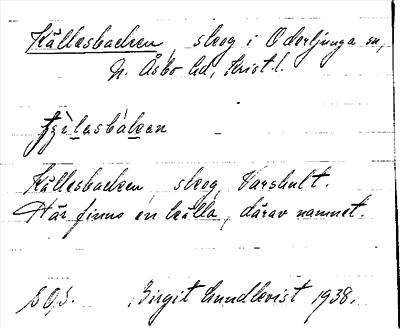 Källesbacken, skog i Oderljunga sn,
N. Åsbo hd, Krist. l.
Källesbacken, skog, Varshult.
Här finns en källa, därav namnet.
Birgit Lundkvist 1938.